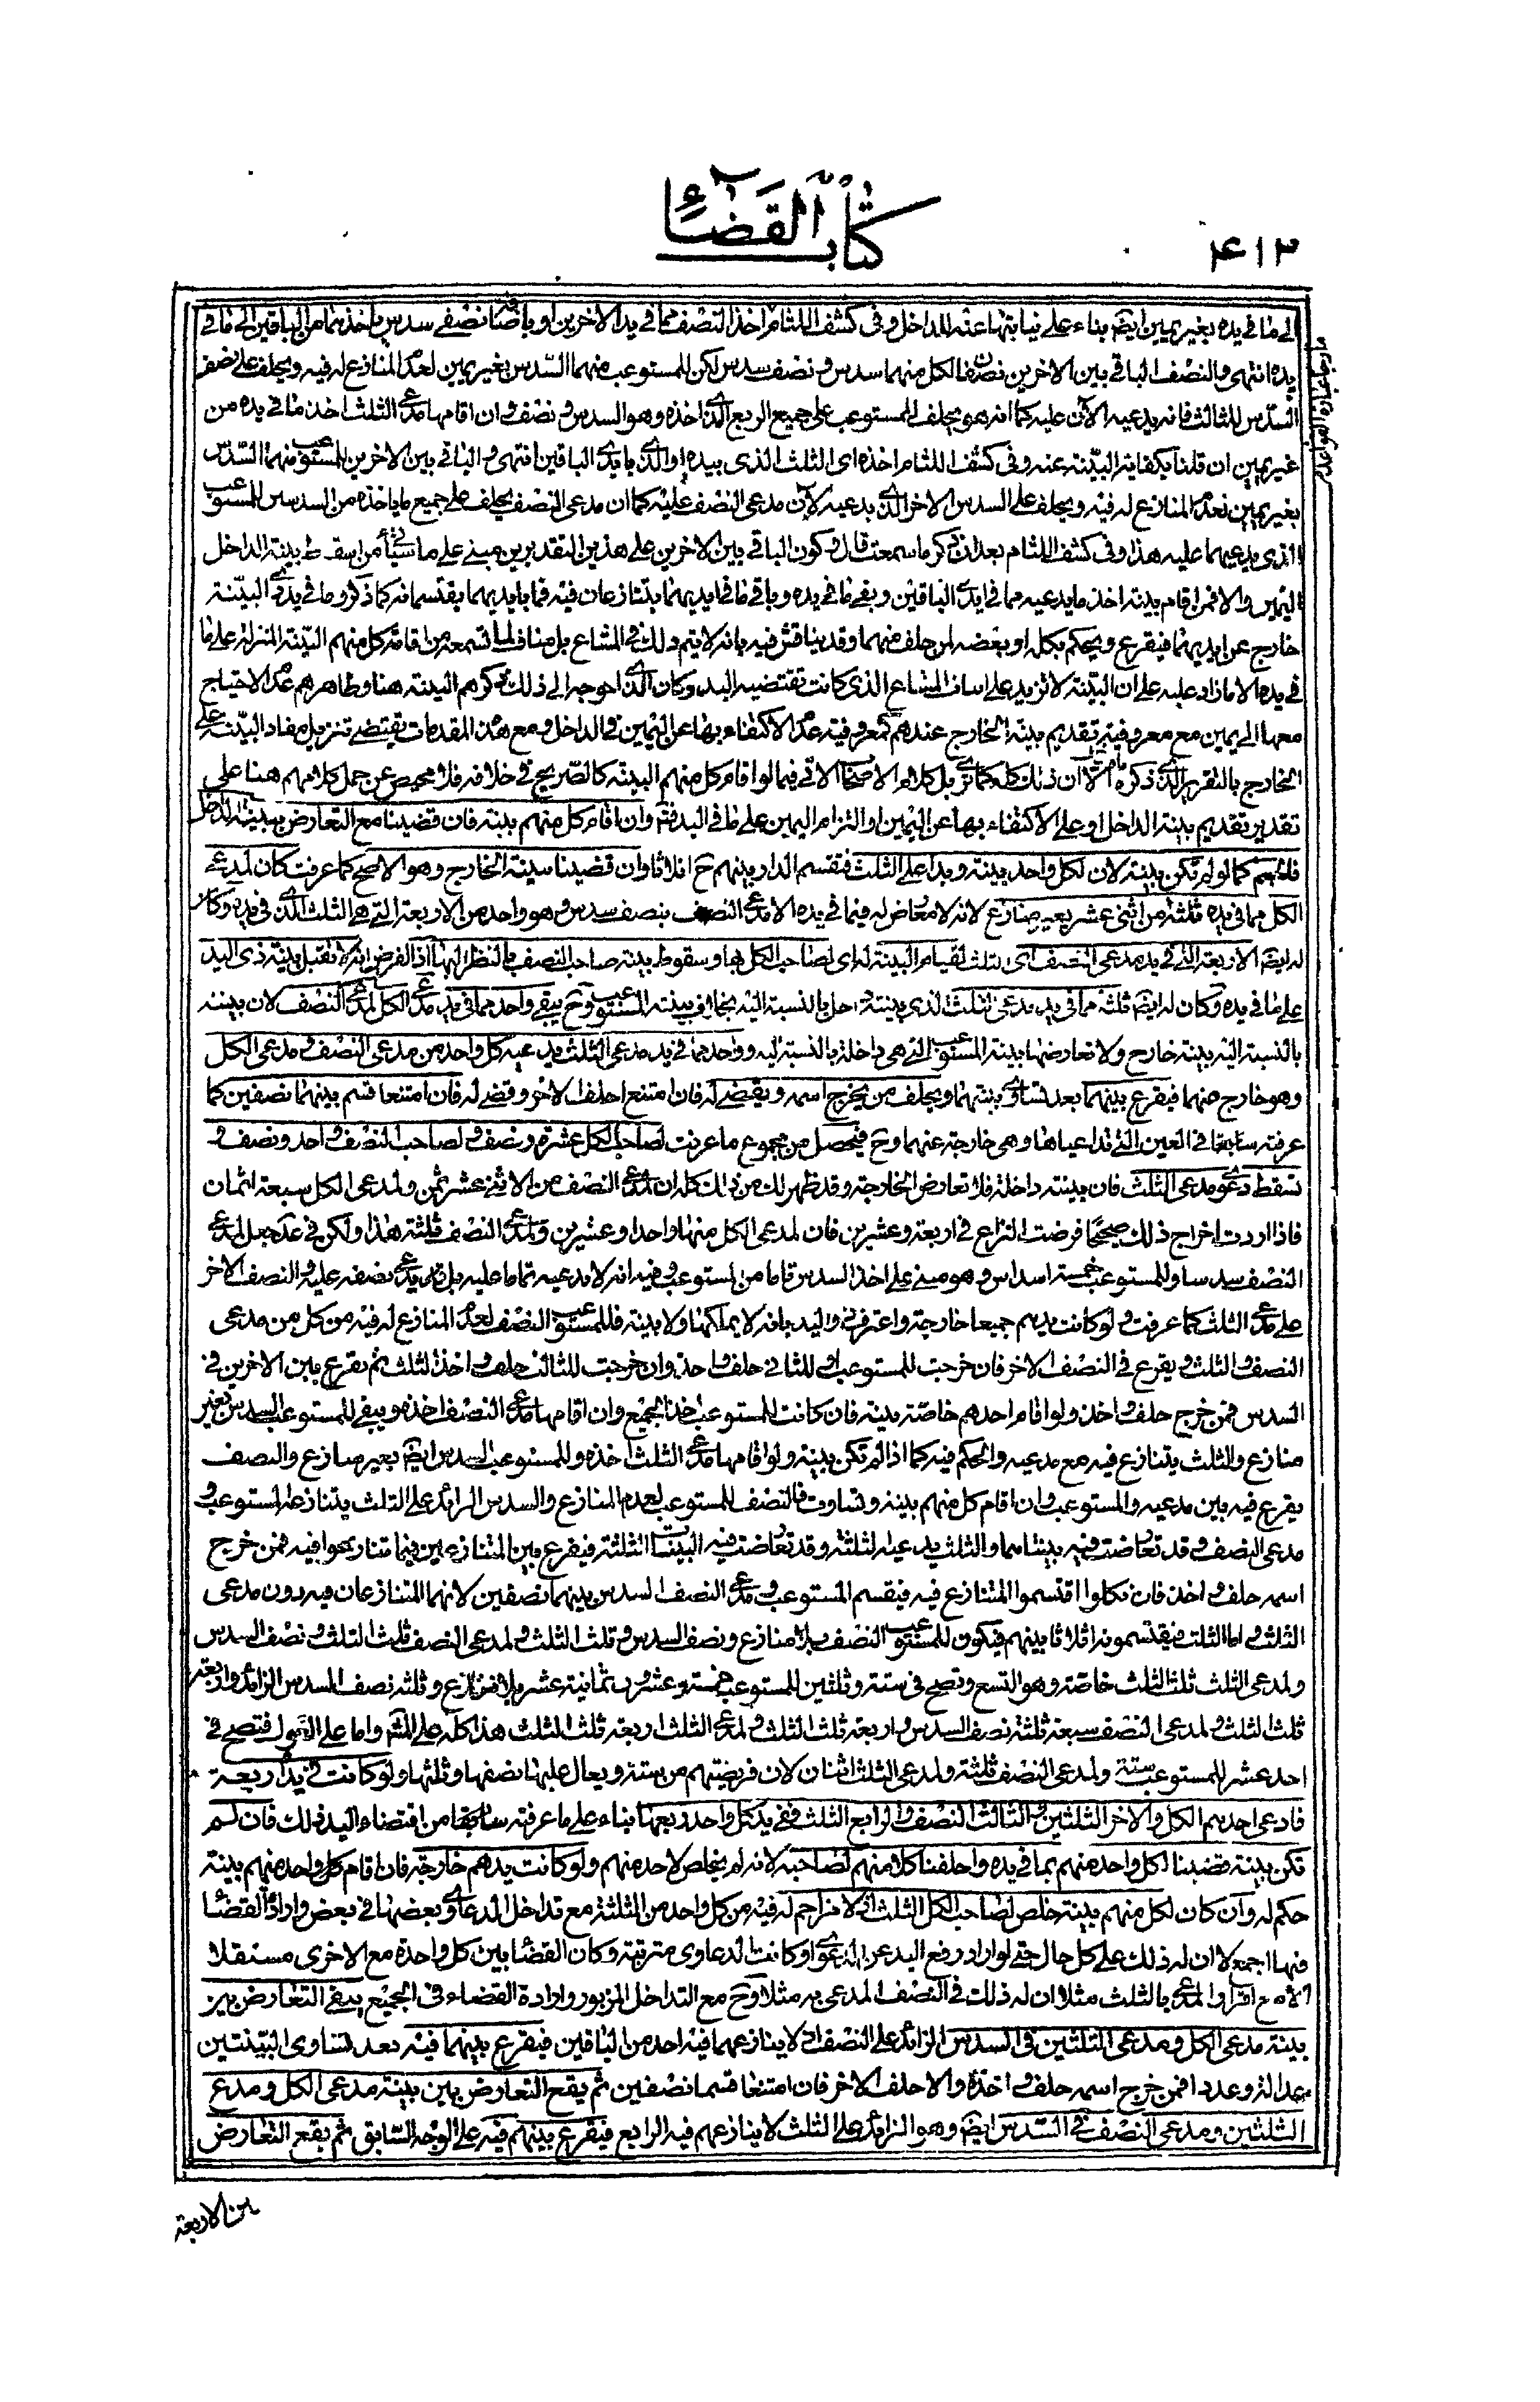 كتاب القضاء
٤١٣
الى ما في يده بغير يمين ايضا بناء على نيابتها عنه للداخل وفي كشف اللثام اخذ النصف مما في يد الاخرين او نصفي سدس ياخذهما من الباقين الى ما في
يده انتهى والنصف الباقي بين الاخرين نصفان لكل منهما سدس ونصف سدس لكن للمستوعب منهما السدس بغير يمين لعدم المنازع له فيه ويحلف على نصف
السدس للثالث فانه يدعيه الآن عليه كما انه هو يحلف للمستوعب على جميع الربع الذي اخذه وهو السدس ونصف وان اقامها مدعي الثلث اخذ ما في يده من
غير يمين ان قلنا بكفاية البينة عنه وفي كشف اللثام اخذه اي الثلث الذي بيده او الذي بايدي الباقين انتهى والباقي بين الاخرين للمستوعب منهما السدس
بغير يمين لعدم المنازع له فيه ويحلف على السدس الاخر الذي يدعيه الآن مدعي النصف عليه كما ان مدعي النصف يحلف على جميع ما ياخذه من السدسين للمستوعب
الذي يدعيهما عليه هذا وفي كشف اللثام بعد ان ذكر ما سمعت قال وكون الباقي بين الاخرين على هذين التقديرين مبني على ما سيأتي من اسقاط بينة الداخل
اليمين والا فمن اقام بينة اخذ ما يدعيه مما في ايدي الباقين وبقي ما في يده وباقي ما في ايديهما يتنازعان فيه فما بايديهما يقتسمانه كما ذكر وما في يد ذي البينة
خارج عن ايديهما فيقرع ويحكم بكله او بعضه لمن حلف منهما وقد يناقش فيه بانه لا يتم ذلك في المشاع بل مناف لما تسمعه من اقامة كل منهم البينة المنزلة على ما
في يدها لا ما زاد عليه على ان البينة لا تزيد على المشاع الذي كانت تقتضيه اليد وكان الذي احوجه الى ذلك ذكرهم البينة هنا وظاهرهم عدم الاحتياج
معها الى يمين مع معروفية تقديم بينة الخارج عندهم كمعروفية عدم الاكتفاء بها عن اليمين في الداخل ومع هذه المقدمات يقتضي تنزيل مفاد البينة على
الخارج بالتقرير الذي ذكره الا ان ذلك كله كما ترى بل كلام الاصحاب الاتي فيما لو اقام كل منهم البينة كالصريح في خلافه فلا محيص عن حمل كلامهم هنا على
تقدير تقديم بينة الداخل او على الاكتفاء بها عن اليمين او التزام اليمين على ما في اليد فتم وان اقام كل منهم بينة فان قضينا مع التعارض ببينة الداخل
فالحكم كما لو لم تكن بينة لان لكل واحد بينة ويدا على الثلث فتقسم الدار بينهم ح اثلاثا وان قضينا ببينة الخارج وهو الاصح كما عرفت كان لمدعي
الكل مما في يده ثلثة من اثنى عشر بغير منازع لانه لا معارض له فيما في يده الا مدعي النصف بنصف سدس وهو واحد من الاربعة التي هي الثلث الذي في يده وكان
له ايضا الاربعة التي في يد مدعي النصف اي الثلث لقيام البينة له اي لصاحب الكل بها وسقوط بينة صاحب النصف بالنظر اليها اذ الفرض انه لا تقبل بينة ذي اليد
على ما في يده وكان له ايضا ثلثة مما في يد مدعي الثلث الذي بينته داخل بالنسبة اليه بخلاف بينة المستوعب وح يبقى واحد مما في يد مدعي الكل لمدعي النصف لان بينته
بالنسبة اليه بينة خارج ولا تعارضها بينة المستوعب التي هي داخلة بالنسبة اليه وواحد مما في يد مدعي الثلث يدعيه كل واحد من مدعي النصف ومدعي الكل
وهو خارج عنهما فيقرع بينهما بعد تساوي بينتهما ويحلف من يخرج اسمه ويقضى له فان امتنع احلف الاخر وقضي له فان امتنعا قسم بينهما نصفين كما
عرفته سابقا في العين التي تداعياها وهي خارجة عنهما وح فيحصل من مجموع ما عرفت لصاحب الكل عشرة ونصف ولصاحب النصف واحد ونصف و
تسقط دعوى مدعي الثلث فان بينته داخلة فلا تعارض الخارجة وقد ظهر لك من ذلك كله ان لمدعي النصف من الاثنى عشر ثمن ولمدعي الكل سبعة اثمان
فاذا اردت اخراج ذلك صحيحا فرضت النزاع في اربعة وعشرين فان لمدعي الكل منها واحدا وعشرين ولمدعي النصف ثلثة هذا ولكن في عد جعل لمدعي
النصف سدسا وللمستوعب خمسة اسداس وهو مبني على اخذ السدس تاما من المستوعب وفيه انه لا يدعيه تماما عليه بل يدعي نصفه عليه والنصف الاخر
على مدعي الثلث كما عرفت ولو كانت يدهم جميعا خارجة واعترف ذو اليد بانه لا يملكها ولا بينة فللمستوعب النصف لعدم المنازع له فيه من كل من مدعي
النصف والثلث ويقرع في النصف الاخر فان خرجت للمستوعب او للثاني حلف واخذ وان خرجت للثالث حلف واخذ الثلث ثم يقرع بين الاخرين في
السدس فمن خرج حلف واخذ ولو اقام احدهم خاصة بينة فان كانت للمستوعب اخذ الجميع وان اقامها مدعي النصف اخذه ويبقى للمستوعب السدس بغير
منازع والثلث يتنازع فيه مع مدعيه والحكم فيه كما اذا لم تكن بينة ولو اقامها مدعي الثلث اخذه وللمستوعب السدس ايضا بغير منازع والنصف
يقرع فيه بين مدعيه والمستوعب وان اقام كل منهم بينة وتساوت فالنصف للمستوعب لعدم المنازع والسدس الزائد على الثلث يتنازعه المستوعب و
مدعي النصف وقد تعارضت فيه بينتاهما والثلث يدعيه الثلثة وقد تعارضت فيه البينات الثلثة فيقرع بين المتنازعين فيما تنازعوا فيه فمن خرج
اسمه حلف واخذ فان نكلوا اقتسموا المتنازع فيه فيقسم المستوعب ومدعي النصف السدس بينهما نصفين لانهما المتنازعان فيه دون مدعي
الثلث واما الثلث فيقتسمونه اثلاثا بينهم فيكون للمستوعب النصف بلا منازع ونصف السدس وثلث الثلث ولمدعي النصف ثلث الثلث ونصف السدس
ولمدعي الثلث ثلث الثلث خاصة وهو التسع وتصح في ستة وثلثين للمستوعب خمسة وعشرون ثمانية عشر بلا منازع وثلثه نصف السدس الزائد واربعة
ثلث الثلث ولمدعي النصف سبعة ثلثة نصف السدس واربعة ثلث الثلث ولمدعي الثلث اربعة ثلث الثلث هذا كله على المش واما على العول فتصح في
احد عشر للمستوعب ستة ولمدعي النصف ثلثة ولمدعي الثلث اثنان لان فريضتهم من ستة ويعال عليها نصفها وثلثها ولو كانت في يد اربعة
فادعى احدهم الكل والاخر الثلثين والثالث النصف والرابع الثلث ففي يد كل واحد ربعها بناء على ما عرفته سابقا من اقتضاء اليد ذلك فان لم
تكن بينة قضينا لكل واحد منهم بما في يده واحلفنا كلا منهم لصاحبه لانه لم يخلص لاحد منهم ولو كانت يدهم خارجة فان اقام كل واحد منهم بينة
حكم له وان كان لكل منهم بينة خلص لصاحب الكل الثلث اذ لا مزاحم له فيه من كل واحد من الثلثة مع تداخل الدعاوى بعضها في بعض وارادة القضا
فيها اجمع لا ان له ذلك على كل حال حتى لو اراد رفع اليد عن الدعوى او كانت الدعاوى مترتبة وكان القضا بين كل واحدة مع الاخرى مستقلا
لا مع اقرار المدعي بالثلث مثلا ان له ذلك في النصف المدعي به مثلا وح مع التداخل المزبور وارادة القضاء في الجميع يبقى التعارض بين
بينة مدعي الكل ومدعي الثلثين في السدس الزائد على النصف اذ لا ينازعهما فيه احد من الباقين فيقرع بينهما فيه بعد تساوي البينتين
عدالة وعددا فمن خرج اسمه حلف واخذه والا احلف الاخر فان امتنعا قسما نصفين ثم يقع التعارض بين بينة مدعي الكل ومدعي
الثلثين ومدعي النصف في السدس ايضا وهو الزائد على الثلث لا ينازعهم فيه الرابع فيقرع بينهم فيه على الوجه السابق ثم يقع التعارض
بين الاربعة